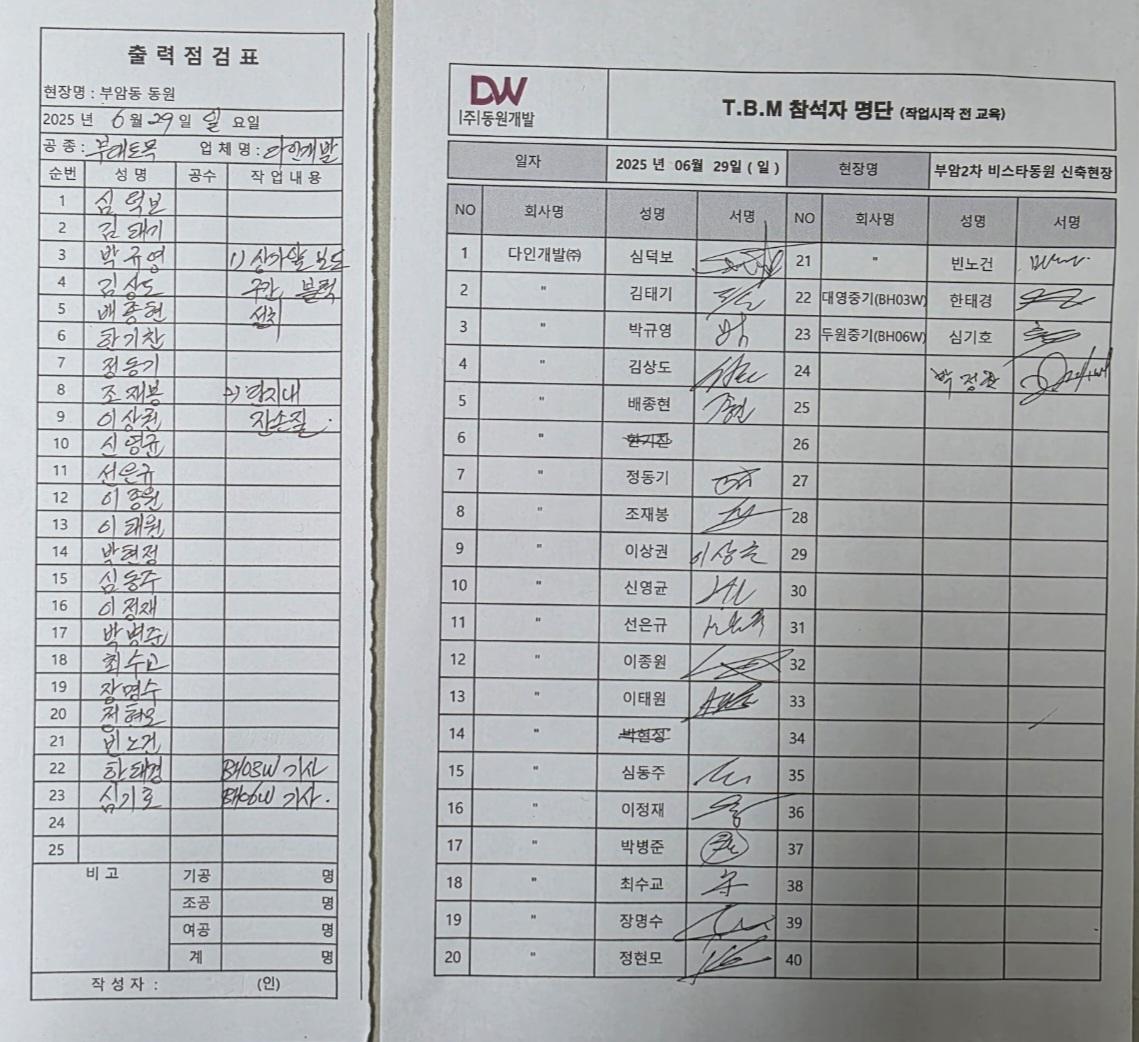 출 력 점 검 표
현장명 : 부암동 동원
2025 년 6 월 29 일 일 요일
공 종 : 부대토목 업 체 명 : 다인개발
순번 성 명 공수 작 업 내 용
1 심덕보
2 김태기
3 박규영 1) 상가앞 보도
4 김상도 구간 블럭
5 배종현 설치
6 한기찬
7 정동기
8 조재봉 2) 단지내
9 이상권 잔손질.
10 신영균
11 선은규
12 이종원
13 이태원
14 박현정
15 심동주
16 이정재
17 박병준
18 최수교
19 장명수
20 정현모
21 빈노건
22 한태경 BH03W 기사
23 심기호 BH06W 기사.
24
25
비 고 기공 명
조공 명
여공 명
계 명
작 성 자 : (인)
DW
(주)동원개발
T.B.M 참석자 명단 (작업시작 전 교육)
일자 2025 년 06월 29일 ( 일 ) 현장명 부암2차 비스타동원 신축현장
NO 회사명 성명 서명 NO 회사명 성명 서명
1 다인개발㈜ 심덕보 21 " 빈노건
2 " 김태기 22 대영중기(BH03W) 한태경
3 " 박규영 23 두원중기(BH06W) 심기호
4 " 김상도 24 박정환
5 " 배종현 종현 25
6 " 한기찬 26
7 " 정동기 27
8 " 조재봉 28
9 " 이상권 이상권 29
10 " 신영균 30
11 " 선은규 31
12 " 이종원 32
13 " 이태원 33
14 " 박현정 34
15 " 심동주 35
16 " 이정재 36
17 " 박병준 37
18 " 최수교 38
19 " 장명수 39
20 " 정현모 40